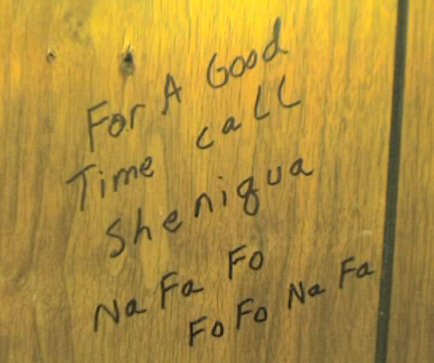 For A Good
Time call
Sheniqua
Na Fa Fo
Fo Fo Na Fa